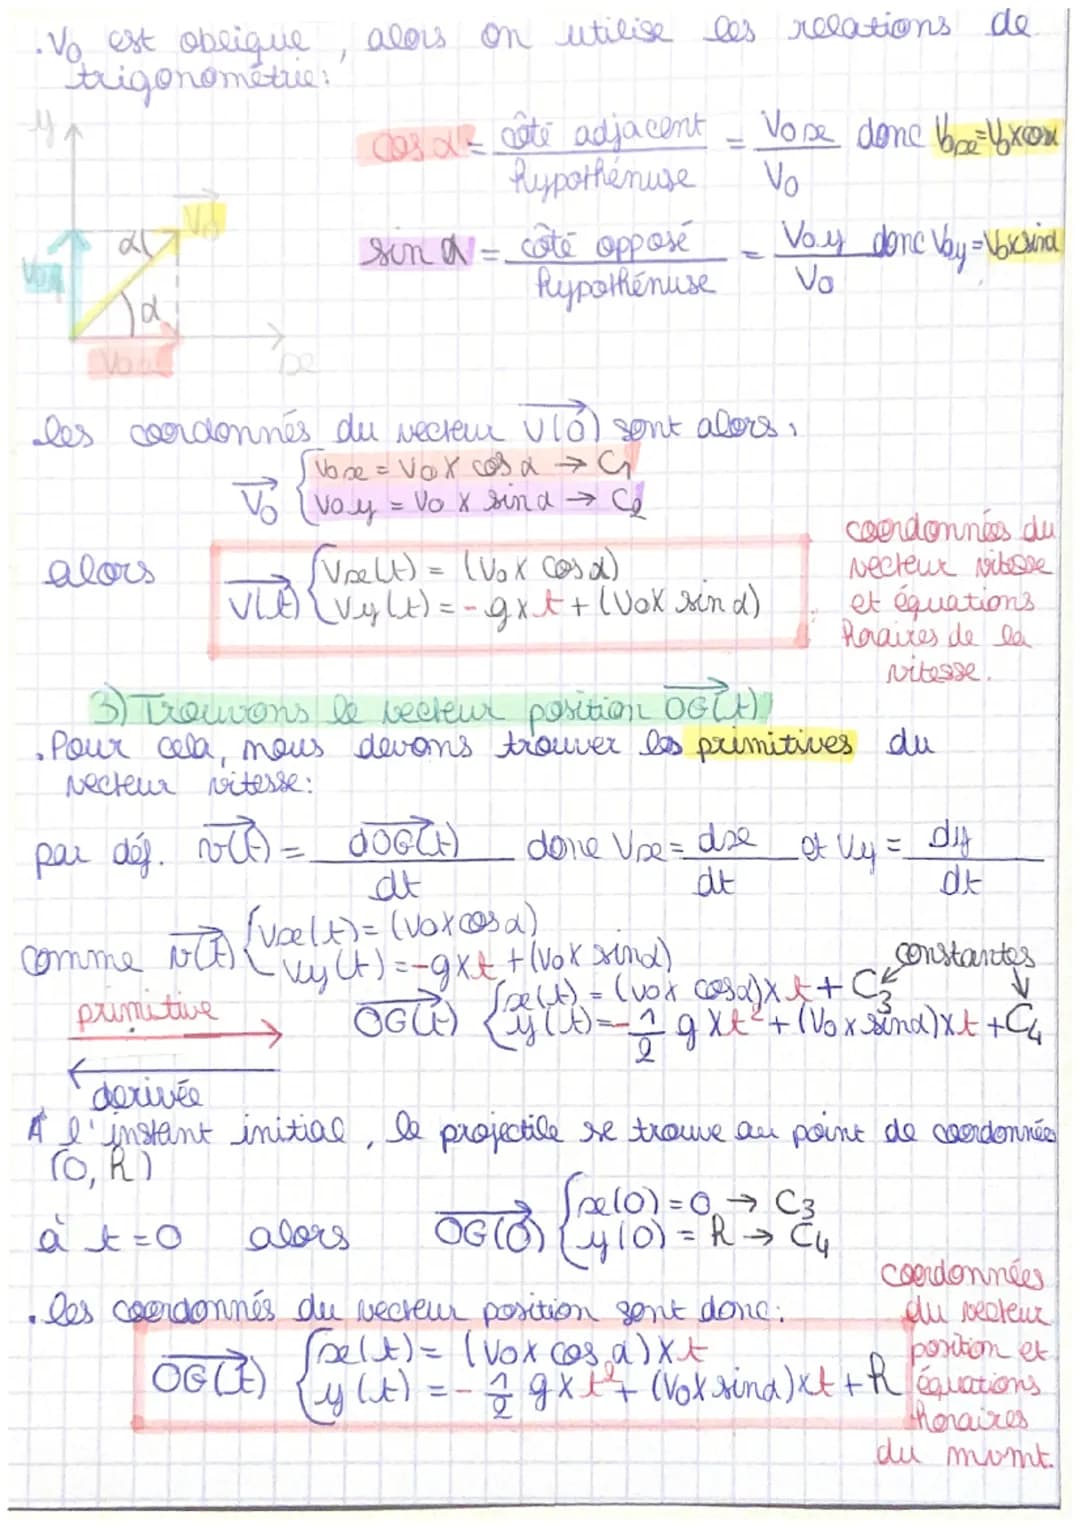 . V₀ est oblique, alors on utilise les relations de
trigonométrie:
y
cos α = côté adjacent / hypothénuse = V₀x / V₀ donc V₀x = V₀ x cosα
V₀
α
sin α = côté opposé / hypothénuse = V₀y / V₀ donc V₀y = V₀ x sinα
V₀y
α
V₀x
x
les coordonnés du vecteur V(0) sont alors:
V₀ { V₀x = V₀ x cos α → C₁
V₀y = V₀ x sin α → C₂
alors V(t) { Vx(t) = (V₀ x cos α)
Vy(t) = - g x t + (V₀ x sin α)
coordonnées du
vecteur vitesse
et équations
horaires de la
vitesse.
3) Trouvons le vecteur position OG(t)
. Pour cela, nous devons trouver les primitives du
vecteur vitesse:
par déf. v(t) = dOG(t) / dt donc Vx = dx / dt et Vy = dy / dt
comme v(t) { Vx(t) = (V₀ x cos α)
Vy(t) = -g x t + (V₀ x sinα)
constantes
primitive
OG(t) { x(t) = (V₀ x cosα) x t + C₃
y(t) = - 1/2 g x t² + (V₀ x sinα) x t + C₄
derivée
A l'instant initial, le projectile se trouve au point de coordonnées
(0, h)
à t = 0 alors OG(0) { x(0) = 0 → C₃
y(0) = h → C₄
. les coordonnés du vecteur position sont donc:
OG(t) { x(t) = (V₀ x cos α) x t
y(t) = - 1/2 g x t² + (V₀ x sinα) x t + h
coordonnées
du vecteur
position et
équations
horaires
du mvmt.